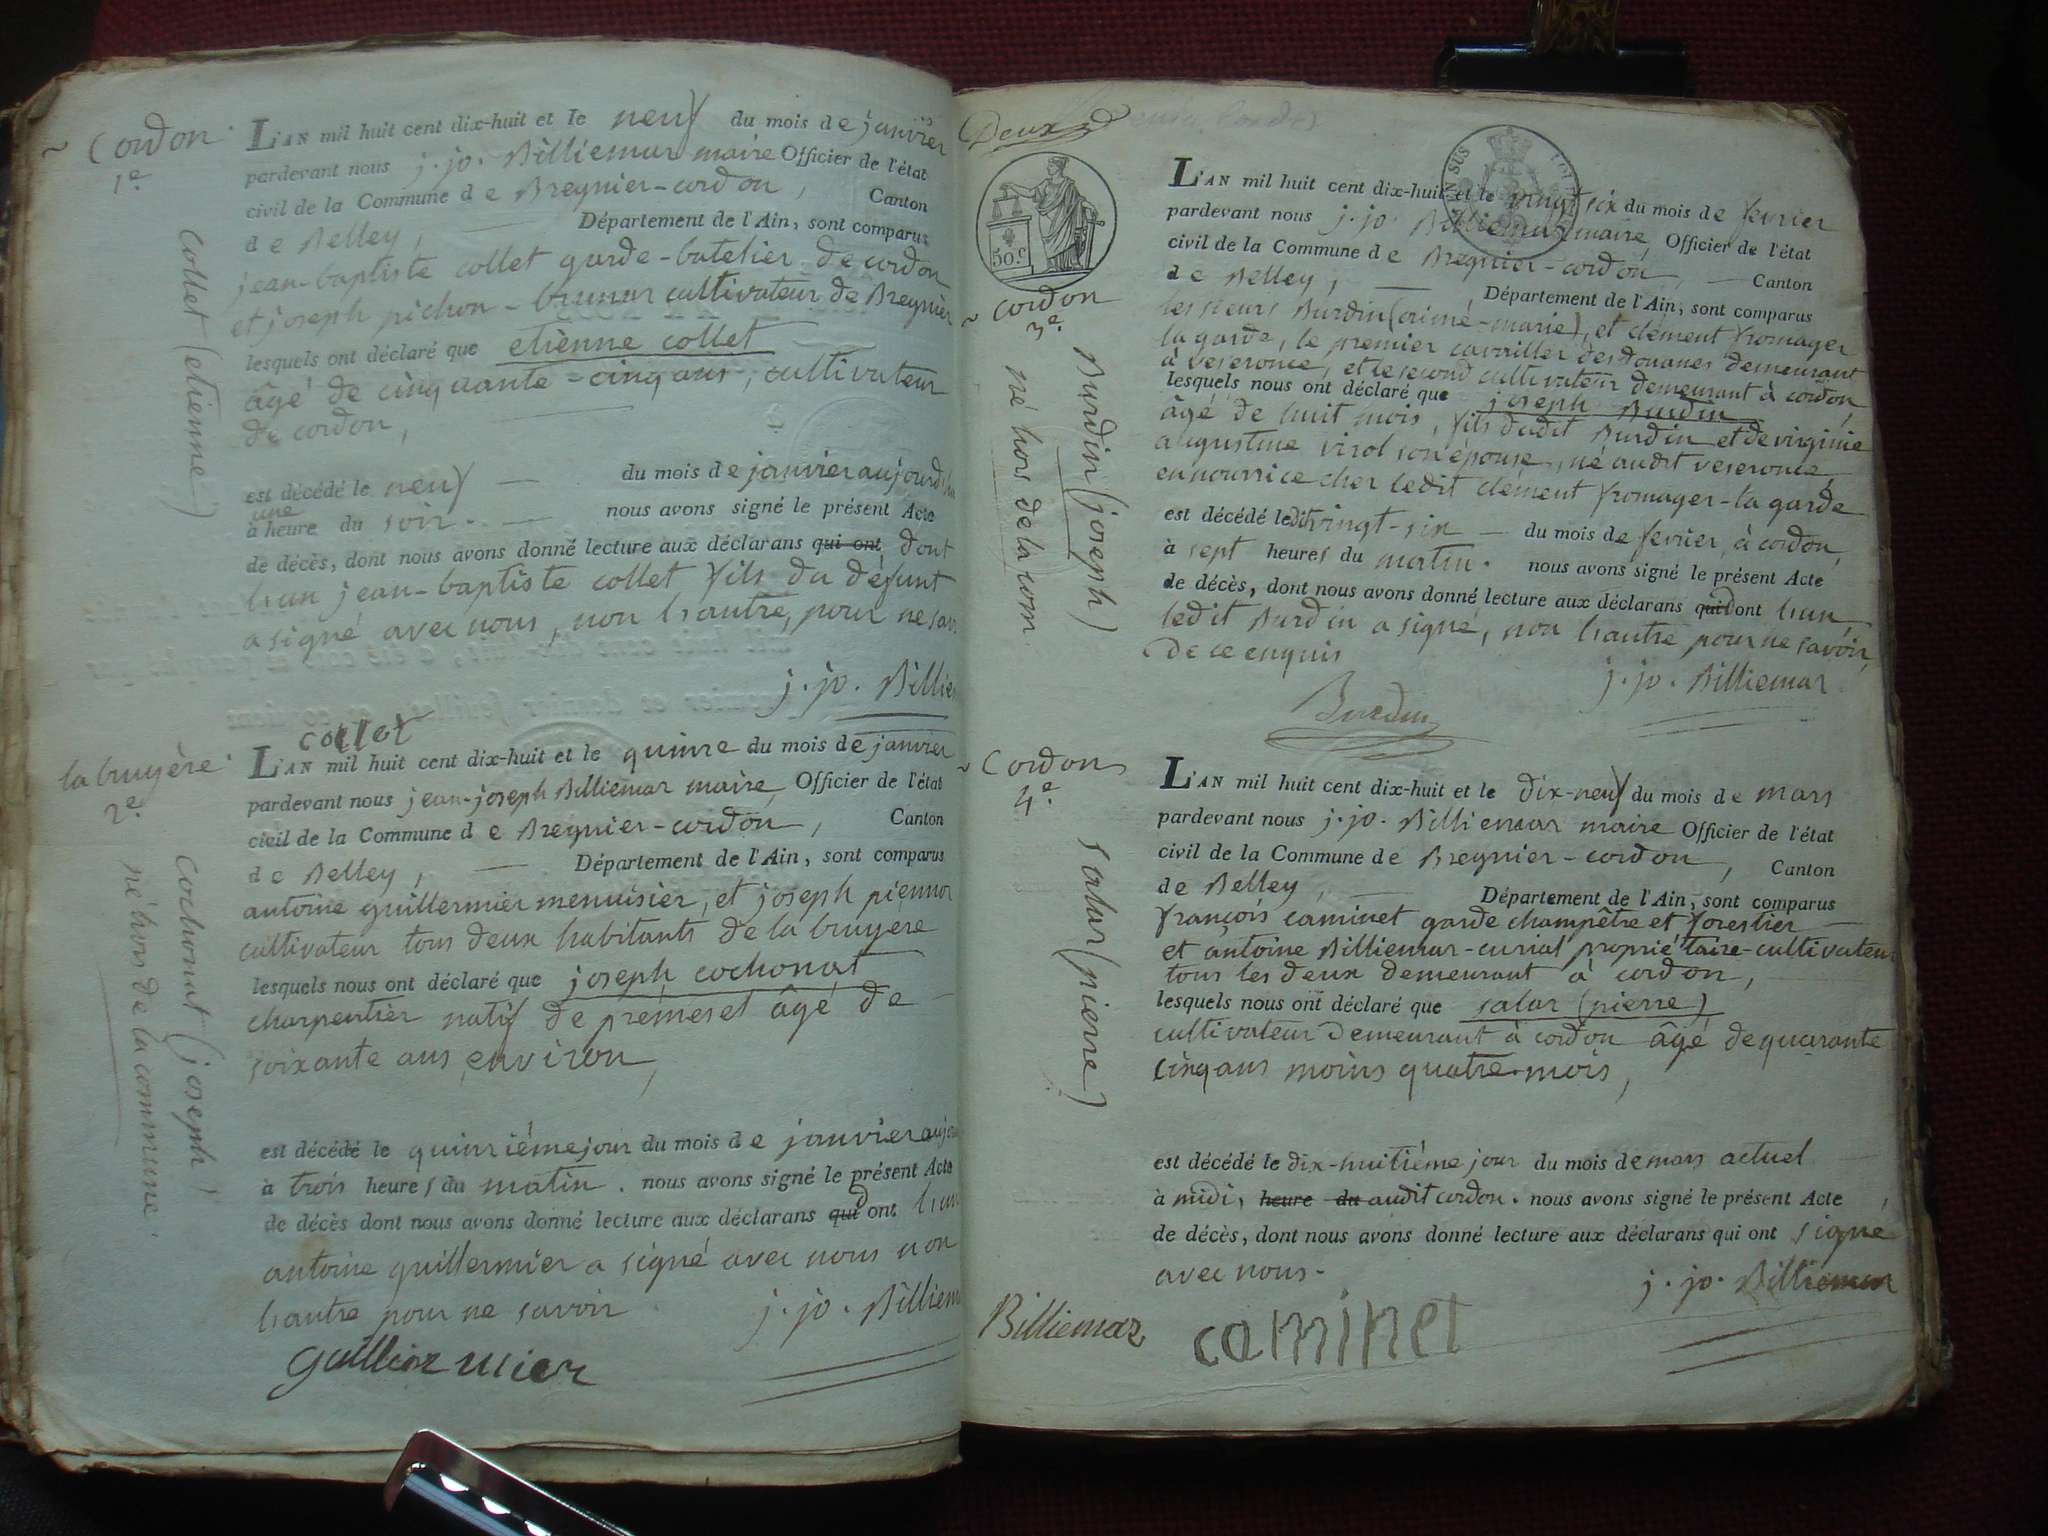 Cordon
1e.
Collet (etienne)
L'AN mil huit cent dix-huit et le neuf du mois de janvier
pardevant nous j. jo. Billiemar maire Officier de l'état
civil de la Commune de Bregnier-cordon, Canton
de Belley, Département de l'Ain, sont comparus
jean-baptiste collet garde-batelier de cordon
et joseph pichon-brunar cultivateur de Bregnier
lesquels ont déclaré que etienne collet
âgé de cinquante-cinq ans, cultivateur
de cordon,
est décédé le neuf du mois de janvier aujourd'hui
à une heure du soir. nous avons signé le présent Acte
de décès, dont nous avons donné lecture aux déclarans qui ont dont
l'un jean-baptiste collet fils du défunt
a signé avec nous, non l'autre, pour ne savoir
j. jo. Billiemar
collet
la bruyère
2e.
Cochonat (joseph)
né hors de la commune
L'AN mil huit cent dix-huit et le quinze du mois de janvier
pardevant nous jean-joseph Billiemar maire, Officier de l'état
civil de la Commune de Bregnier-cordon, Canton
de Belley, Département de l'Ain, sont comparus
antoine guillermier menuisier, et joseph
cultivateur tous deux habitants de la bruyere
lesquels nous ont déclaré que joseph cochonat
charpentier natif de prémeset âgé de
soixante ans environ,
est décédé le quinzième jour du mois de janvier
à trois heures du matin. nous avons signé le présent Acte
de décès dont nous avons donné lecture aux déclarans qui dont l'un
antoine guillermier a signé avec nous non
l'autre pour ne savoir
j. jo. Billiem
Deux
50.c
Cordon
3e.
Burdin (joseph)
né hors de la com
L'AN mil huit cent dix-huit et le vingt six du mois de fevrier
pardevant nous j. jo. Billiemar maire, Officier de l'état
civil de la Commune de Bregnier-cordon, Canton
de Belley, Département de l'Ain, sont comparus
les sieurs Burdin (aimé-marie), et clément fromager
la garde, le premier cavailler des douanes demeurant
à veseronce, et le second cultivateur demeurant à cordon,
lesquels nous ont déclaré que joseph Burdin
âgé de huit mois, fils dudit Burdin et de virginie
augustine virol son épouse, né audit veseronce,
en nourrice chez ledit clément fromager-la garde
est décédé ledit vingt-six du mois de fevrier, à cordon,
à sept heures du matin. nous avons signé le présent Acte
de décès, dont nous avons donné lecture aux déclarans qui dont l'un,
ledit Burdin a signé, non l'autre pour ne savoir,
de ce enquis
j. jo. Billiemar
Burdin
Cordon
4e.
salar (pierre)
L'AN mil huit cent dix-huit et le dix-neuf du mois de mars
pardevant nous j. jo. Billiemar maire Officier de l'état
civil de la Commune de Bregnier-cordon, Canton
de Belley, Département de l'Ain, sont comparus
françois caminet garde champêtre et forestier
et antoine Billiemar-curial propriétaire-cultivateur
tous les deux demeurant à cordon,
lesquels nous ont déclaré que salar (pierre)
cultivateur demeurant à cordon âgé de quarante
cinq ans moins quatre mois,
est décédé le dix-huitième jour du mois de mars actuel
à midi, heure du audit cordon. nous avons signé le présent Acte
de décès, dont nous avons donné lecture aux déclarans qui ont signé
avec nous.
j. jo. Billiemar
Billiemaz
caminet